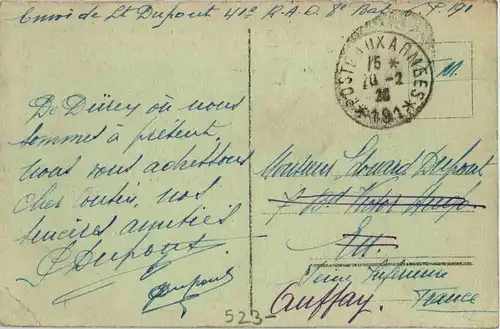 Envoi de Lt Dupont 41e R.A.D. 8e Bat
POSTE AUX ARMÉES
15 *
20 - 2
*191*
De Düren où nous
sommes à présent,
nous vous adressons
cher cousin, nos
sincères amitiés
Dupont
Dupont
Monsieur Edouard Dupont
7 Bd Victor Hugo
Eu
Seine Inférieure
Auffay.
France
523-